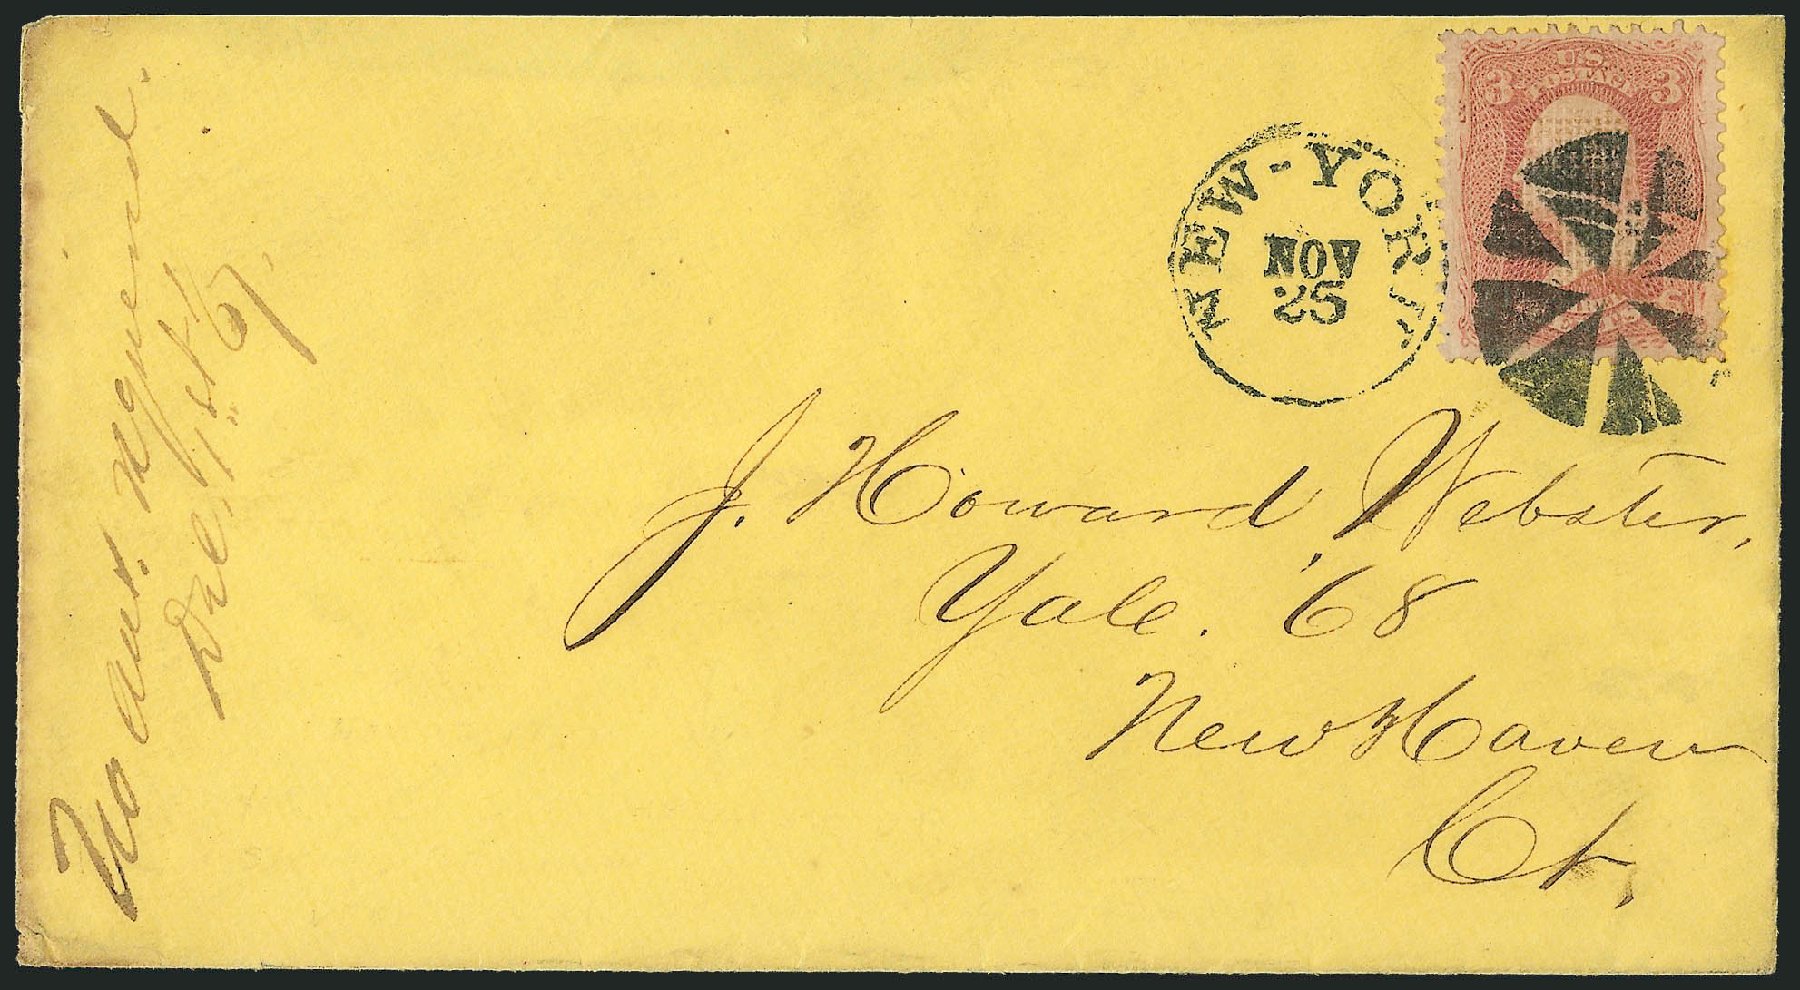 No ans. required.
Dec. 1st '67.
U.S. POSTAGE
3 3
NEW-YORK
NOV
25
J. Howard Webster,
Yale. '68
New Haven
Ct.